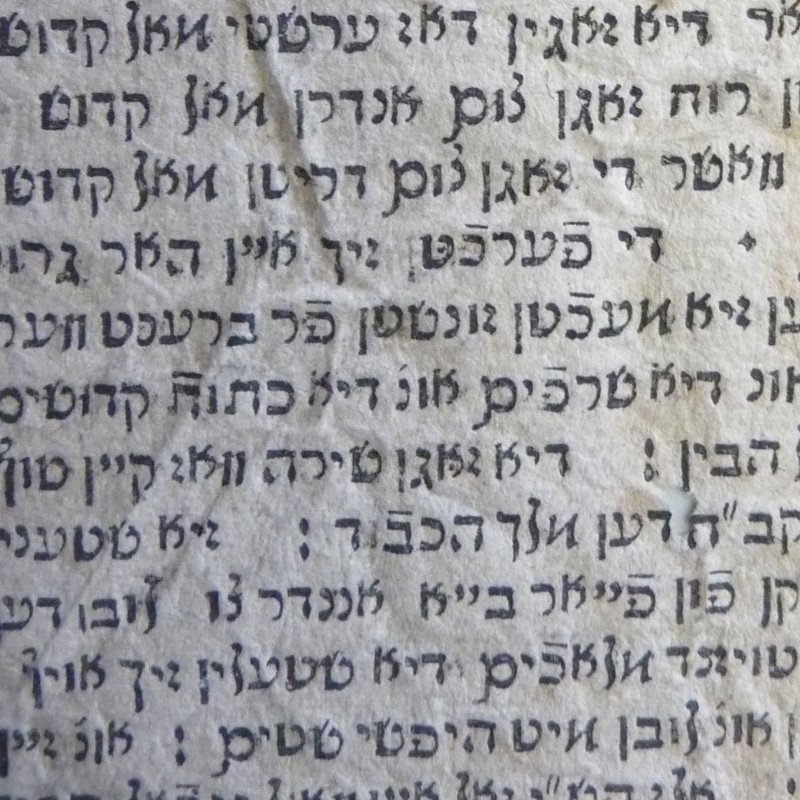 דיא זאגין דאז ערשטי מאל קדוש
רוח זאגן צום אנדרן מאל קדוש
וואשר די זאגן צום דריטן מאל קדוש
די פֿערפֿטן זיך איין האר
זיא מעכֿטן זונשטן פֿר ברענט ווער
אונ דיא שרפֿים אונ דיא כתות קדושים
הבין : דיא זאגן שירה וואז קיין
קב"ה דען מלך הכבֿוד : זיא שטעני
פֿון פֿייאר בייא אננדר צו לובן
טויזנד מלאכֿים דיא שטעלין זיך אויף
אונ לובן מיט היפשי שטים : אונ